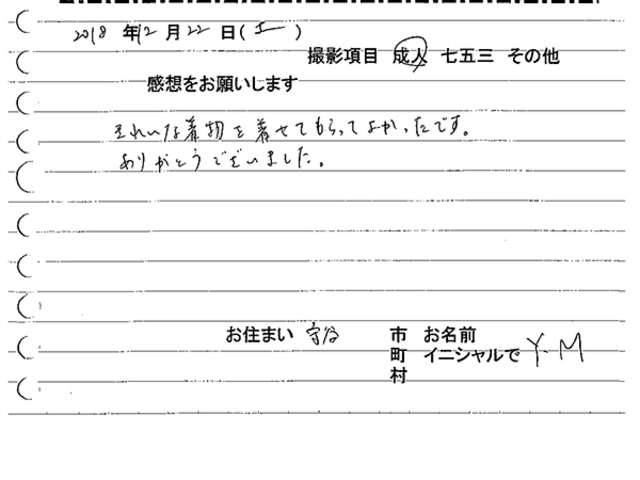 2018 年 12 月 22 日 ( 土 )
撮影項目 成人 七五三 その他
感想をお願いします
きれいな着物を着せてもらってよかったです。
ありがとうございました。
お住まい 守谷 市 お名前
町 イニシャルで Y.M
村